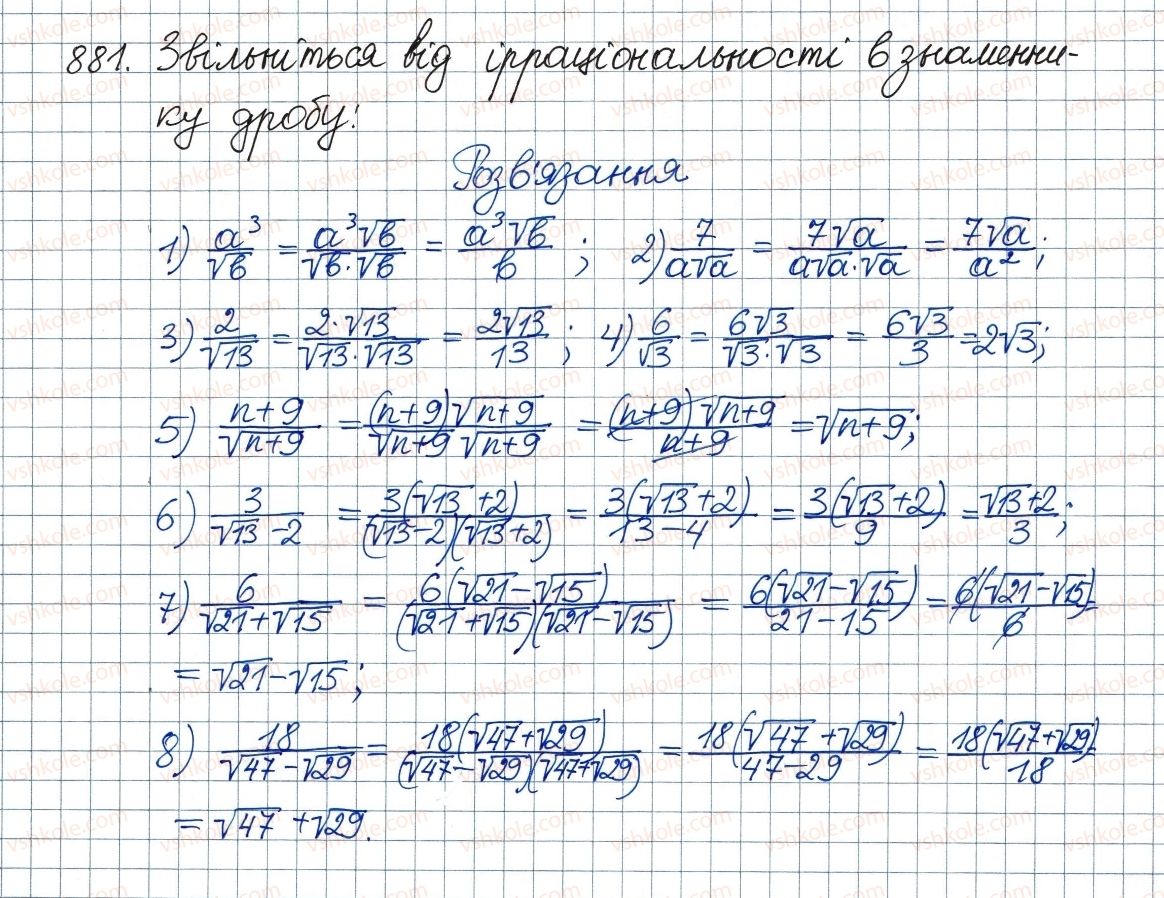 881. Звільніться від ірраціональності в знаменни-
ку дробу:
Розв'язання
1) a³/√b = a³√b/(√b·√b) = a³√b/b ; 2) 7/(a√a) = 7√a/(a√a·√a) = 7√a/a² ;
3) 2/√13 = 2·√13/(√13·√13) = 2√13/13 ; 4) 6/√3 = 6√3/(√3·√3) = 6√3/3 = 2√3;
5) (n+9)/√(n+9) = (n+9)√(n+9)/(√(n+9) √(n+9)) = (n+9)√(n+9)/(n+9) = √(n+9);
6) 3/(√13-2) = 3(√13+2)/((√13-2)(√13+2)) = 3(√13+2)/(13-4) = 3(√13+2)/9 = (√13+2)/3 ;
7) 6/(√21+√15) = 6(√21-√15)/((√21+√15)(√21-√15)) = 6(√21-√15)/(21-15) = 6(√21-√15)/6 =
= √21-√15;
8) 18/(√47-√29) = 18(√47+√29)/((√47-√29)(√47+√29)) = 18(√47+√29)/(47-29) = 18(√47+√29)/18
= √47+√29.